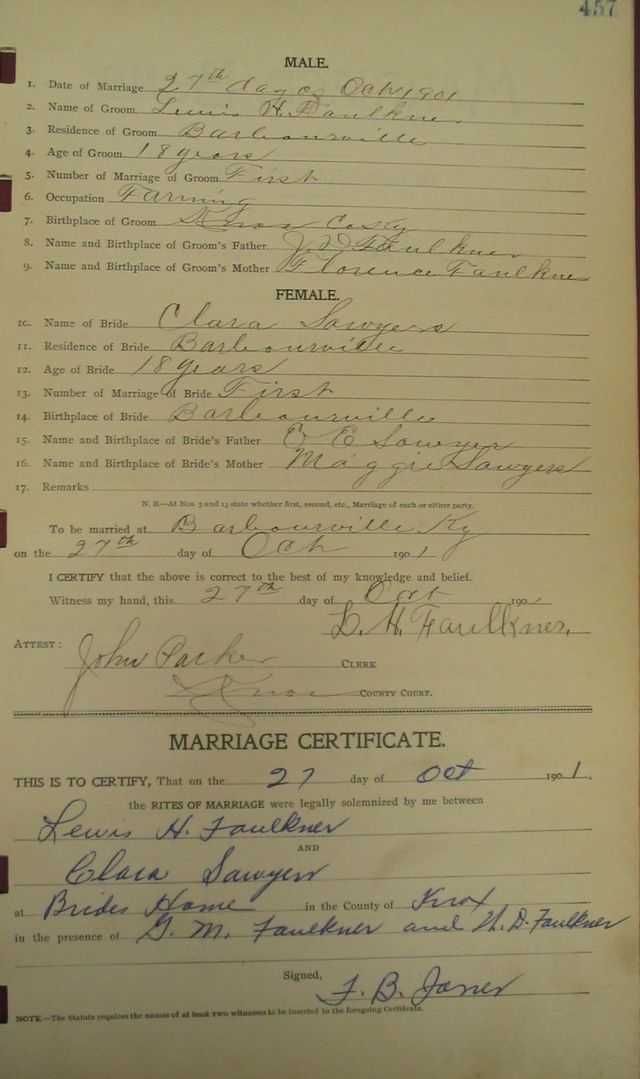 457
MALE.
1. Date of Marriage 27th day of Oct 1901
2. Name of Groom Lewis H. Faulkner
3. Residence of Groom Barbourville
4. Age of Groom 18 years
5. Number of Marriage of Groom First
6. Occupation Farming
7. Birthplace of Groom Knox Co Ky
8. Name and Birthplace of Groom's Father J D Faulkner
9. Name and Birthplace of Groom's Mother Florence Faulkner
FEMALE.
10. Name of Bride Clara Sawyers
11. Residence of Bride Barbourville
12. Age of Bride 18 years
13. Number of Marriage of Bride First
14. Birthplace of Bride Barbourville
15. Name and Birthplace of Bride's Father Sawyer
16. Name and Birthplace of Bride's Mother Maggie Sawyers
17. Remarks
N. B.—At Nos. 5 and 13 state whether first, second, etc., Marriage of each or either party.
To be married at Barbourville Ky
on the 27th day of Oct 1901
I CERTIFY that the above is correct to the best of my knowledge and belief.
Witness my hand, this 27th day of Oct 1901
L. H. Faulkner.
ATTEST:
John Parker CLERK
Knox COUNTY COURT.
MARRIAGE CERTIFICATE.
THIS IS TO CERTIFY, That on the 27 day of Oct 1901.
the RITES OF MARRIAGE were legally solemnized by me between
Lewis H. Faulkner
AND
Clara Sawyers
at Brides Home in the County of Knox
in the presence of G. M. Faulkner and D. Faulkner
Signed,
B. Jones
NOTE.—The Statute requires the names of at least two witnesses to be inserted in the foregoing Certificate.